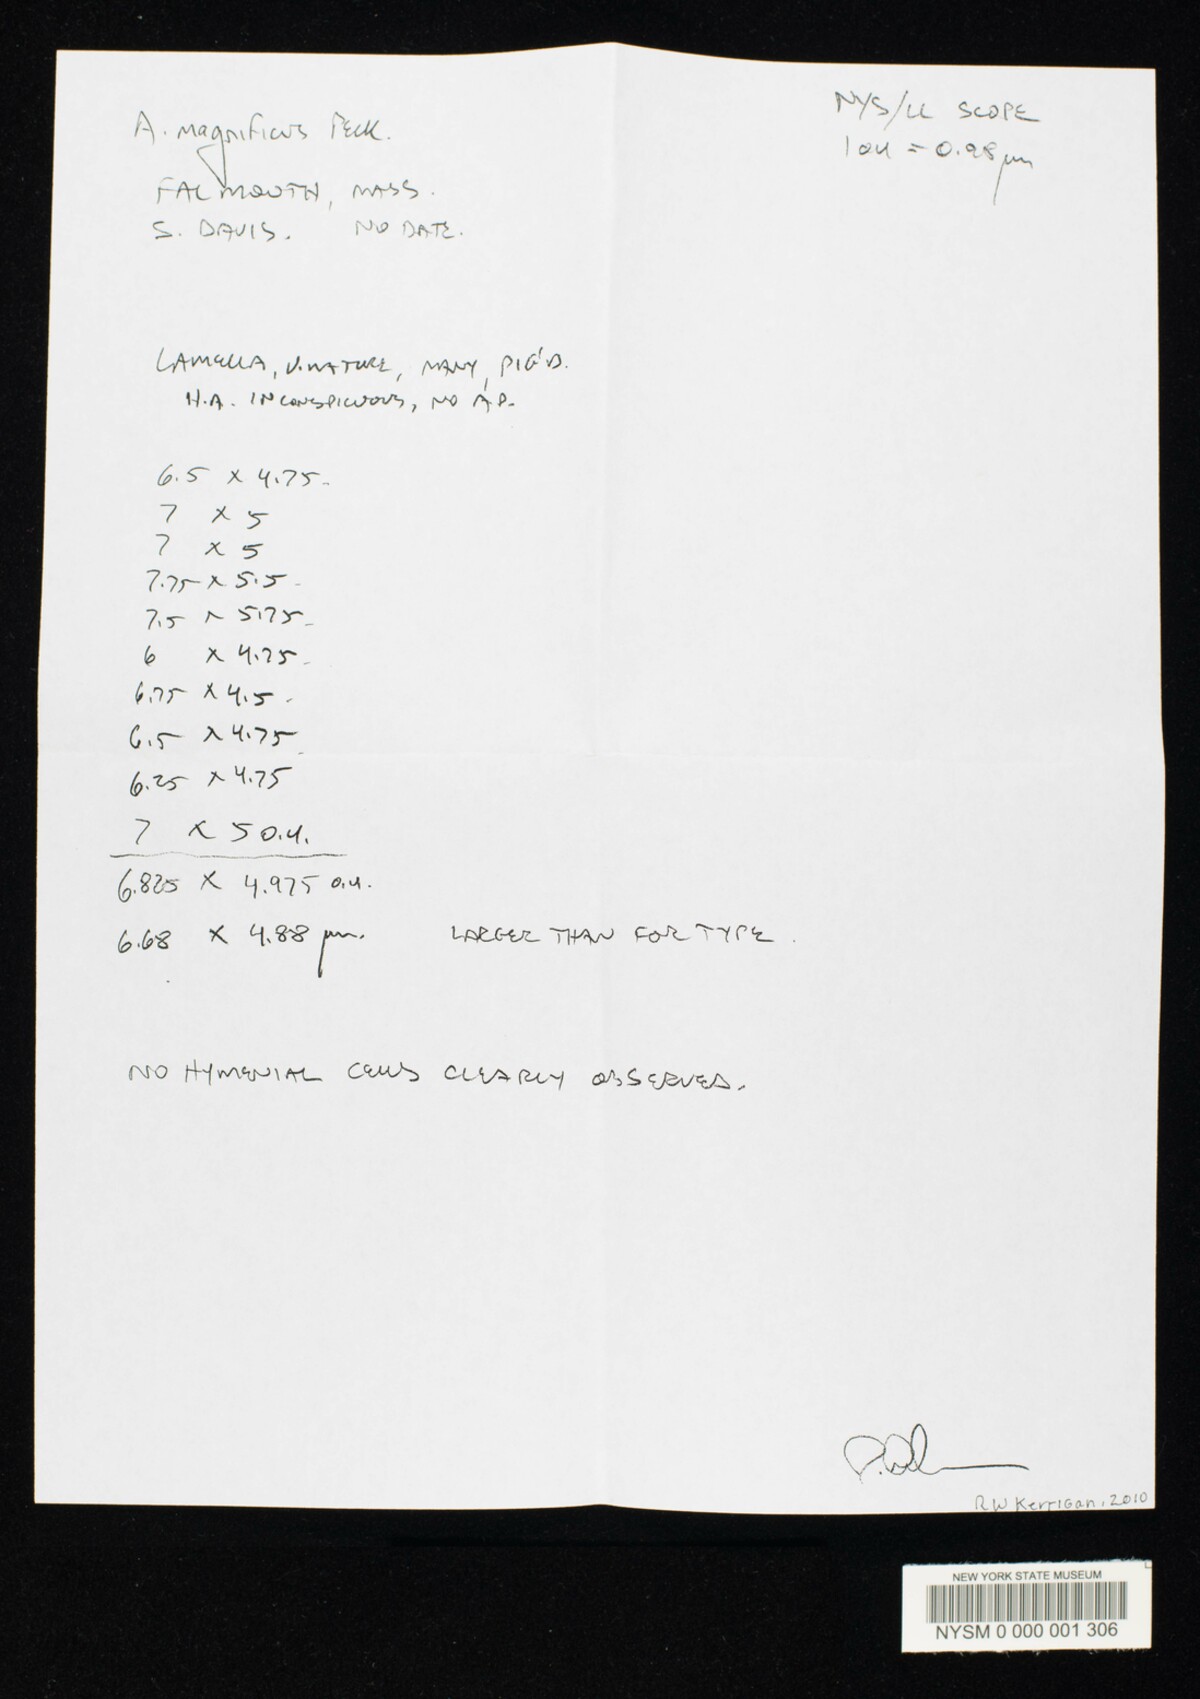 A. magnificus Peck.
NYS/LL SCOPE
1 ou = 0.98 µm
FALMOUTH, MASS.
S. DAVIS. NO DATE.
LAMELLA, V. MATURE, MANY, PIG'D.
H.A. INCONSPICUOUS, NO A.P.
6.5 x 4.75
7 x 5
7 x 5
7.75 x 5.5
7.5 x 5.75
6 x 4.75
6.75 x 4.5
6.5 x 4.75
6.25 x 4.75
7 x 5 o.u.
6.825 x 4.975 o.u.
6.68 x 4.88 µm. LARGER THAN FOR TYPE.
NO HYMENIAL CELLS CLEARLY OBSERVED.
RW Kerrigan, 2010
NEW YORK STATE MUSEUM
NYSM 0 000 001 306